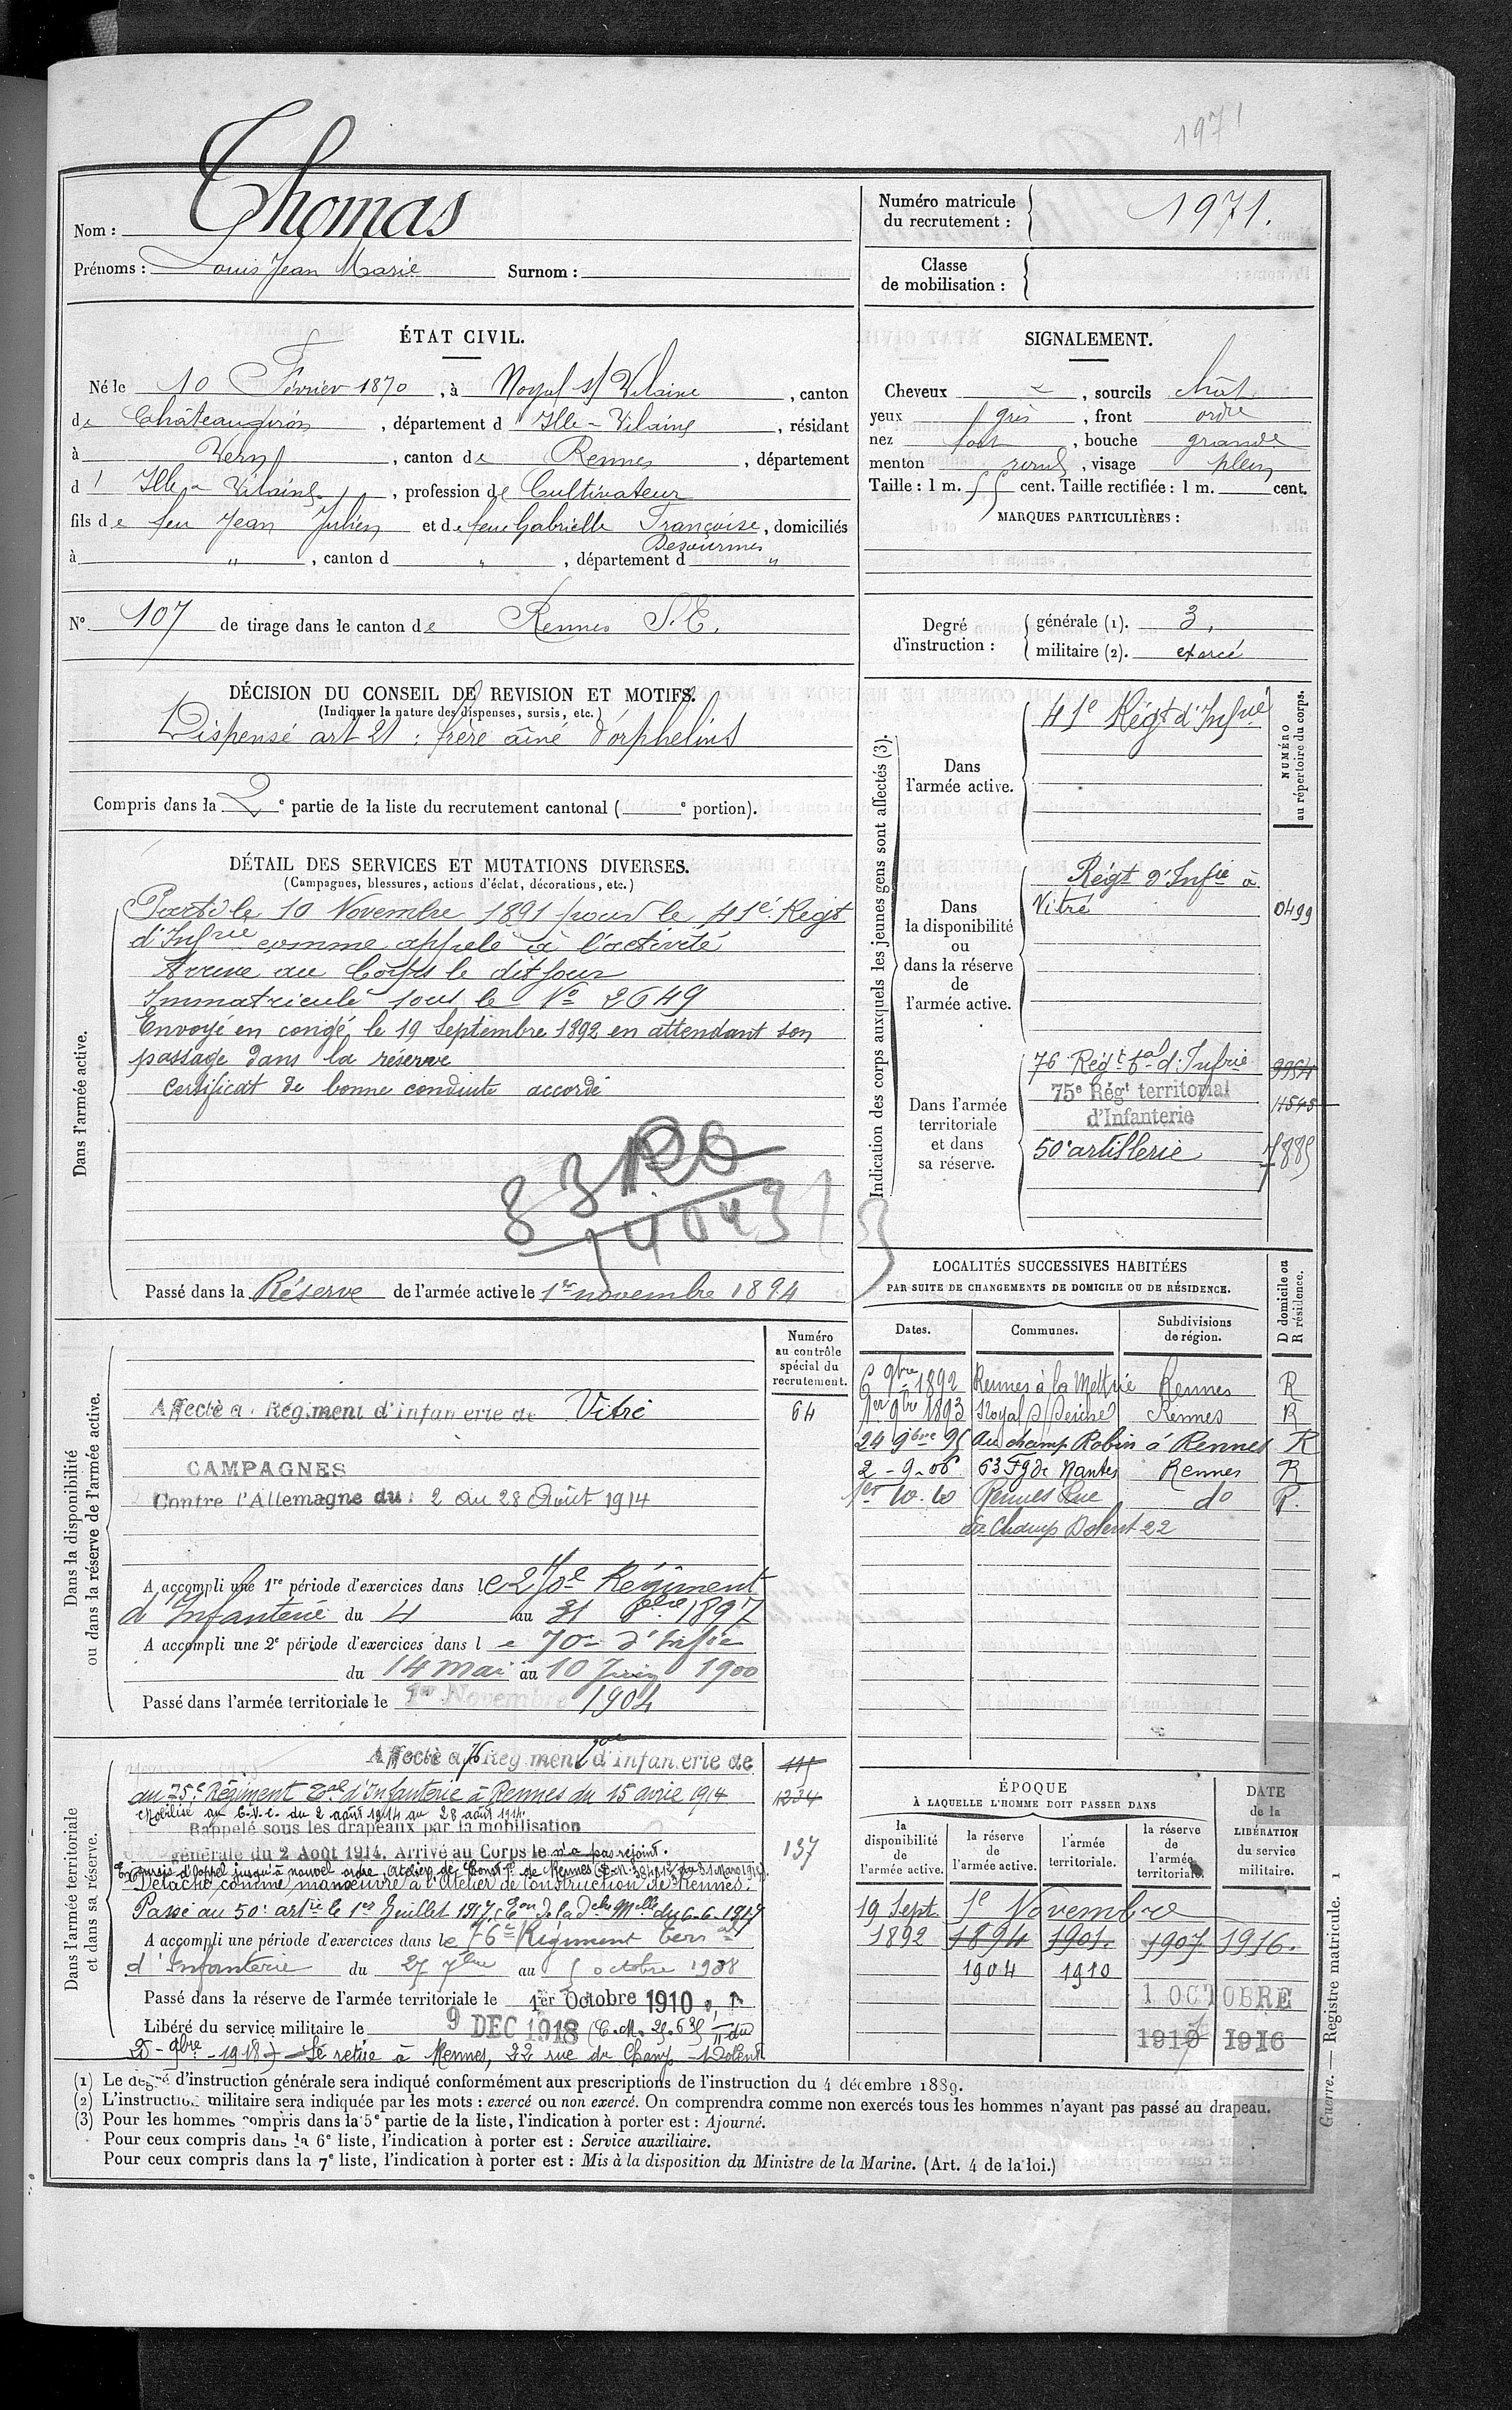 1971
Nom : Thomas
Prénoms : Louis Jean Marie Surnom :
Numéro matricule du recrutement : 1971.
Classe de mobilisation :
ÉTAT CIVIL.
Né le 10 Février 1870, à Noyal s/ Vilaine, canton
de Châteaugiron, département d'Ille-Vilaine, résidant
à Vern, canton de Rennes, département
d'Ille-Vilaine, profession de Cultivateur
fils de feu Jean Julien et de feue Gabrielle Françoise, domiciliés
Desourmes
à " , canton d " , département d "
N° 107 de tirage dans le canton de Rennes S.E.
SIGNALEMENT.
Cheveux , sourcils chât
yeux gris, front ordre
nez fort, bouche grande
menton rond, visage plein
Taille : 1 m. 55 cent. Taille rectifiée : 1 m. cent.
MARQUES PARTICULIÈRES :
Degré d'instruction :
générale (1). 3.
militaire (2). exercé
DÉCISION DU CONSEIL DE REVISION ET MOTIFS.
(Indiquer la nature des dispenses, sursis, etc.)
Dispensé art 21 : frère aîné d'orphelins
Compris dans la 2e partie de la liste du recrutement cantonal ( e portion).
DÉTAIL DES SERVICES ET MUTATIONS DIVERSES.
(Campagnes, blessures, actions d'éclat, décorations, etc.)
Dans l'armée active.
Parti le 10 Novembre 1891 pour le 41e Régt
d'Infrie comme appelé à l'activité
Arrivé au Corps le dit jour
Immatriculé sous le No 2649
Envoyé en congé, le 19 Septembre 1892 en attendant son
passage dans la réserve
Certificat de bonne conduite accordé
Passé dans la Réserve de l'armée active le 1er novembre 1894
Indication des corps auxquels les jeunes gens sont affectés (3).
NUMÉRO au répertoire du corps.
Dans l'armée active.
41e Régt d'Infrie
Dans la disponibilité ou dans la réserve de l'armée active.
Régt d'Infie à
Vitré 0499
Dans l'armée territoriale et dans sa réserve.
76 Régt tal d'Infrie
75e Régt territorial
d'Infanterie
50e artillerie
LOCALITÉS SUCCESSIVES HABITÉES
PAR SUITE DE CHANGEMENTS DE DOMICILE OU DE RÉSIDENCE.
Dates. Communes. Subdivisions de région. D domicile ou R résidence.
6 9bre 1892 Rennes à la Mettrie Rennes R
1er 9bre 1893 Noyal s/ Seiche Rennes R
24 9bre 95 Au champ Robin à Rennes R
2-9-06 63 Fg de Nantes Rennes R
1er 10.10 Rennes Rue do R.
du Champ Dolent 22
Dans la disponibilité ou dans la réserve de l'armée active.
Numéro au contrôle spécial du recrutement.
Affecté au Régiment d'Infanterie de Vitré 64
CAMPAGNES
Contre l'Allemagne du : 2 au 28 Août 1914
A accompli une 1re période d'exercices dans le 270e Régiment
d'Infanterie du 4 au 31 8bre 1897
A accompli une 2e période d'exercices dans le 70e d'Infie
du 14 mai au 10 Juin 1900
Passé dans l'armée territoriale le 1er Novembre 1904
Dans l'armée territoriale et dans sa réserve.
Affecté au 76 Régiment d'Infanterie de
au 75e Régiment Tal d'Infanterie à Rennes du 15 avril 1914 1234
Mobilisé au G.V.C. du 2 août 1914 au 28 août 1914.
Rappelé sous les drapeaux par la mobilisation
générale du 2 Août 1914. Arrivé au Corps le n'a pas rejoint. 137
Détaché comme manœuvre à l'Atelier de Construction de Rennes.
Passé au 50e artie le 1er Juillet 1917
A accompli une période d'exercices dans le 76e Régiment
d'Infanterie du 27 7bre au 5 octobre 1908
Passé dans la réserve de l'armée territoriale le 1er Octobre 1910
Libéré du service militaire le 9 DEC 1918
Se retire à Rennes, 22 rue du Champ-Dolent
ÉPOQUE
À LAQUELLE L'HOMME DOIT PASSER DANS
la disponibilité de l'armée active. la réserve de l'armée active. l'armée territoriale. la réserve de l'armée territoriale.
DATE de la LIBÉRATION du service militaire.
19 Sept. 1e Novembre
1892 1894 1901. 1907 1916.
1904 1910
1 OCTOBRE
1916
(1) Le degré d'instruction générale sera indiqué conformément aux prescriptions de l'instruction du 4 décembre 1889.
(2) L'instruction militaire sera indiquée par les mots : exercé ou non exercé. On comprendra comme non exercés tous les hommes n'ayant pas passé au drapeau.
(3) Pour les hommes compris dans la 5e partie de la liste, l'indication à porter est : Ajourné.
Pour ceux compris dans la 6e liste, l'indication à porter est : Service auxiliaire.
Pour ceux compris dans la 7e liste, l'indication à porter est : Mis à la disposition du Ministre de la Marine. (Art. 4 de la loi.)
Guerre. — Registre matricule. 1